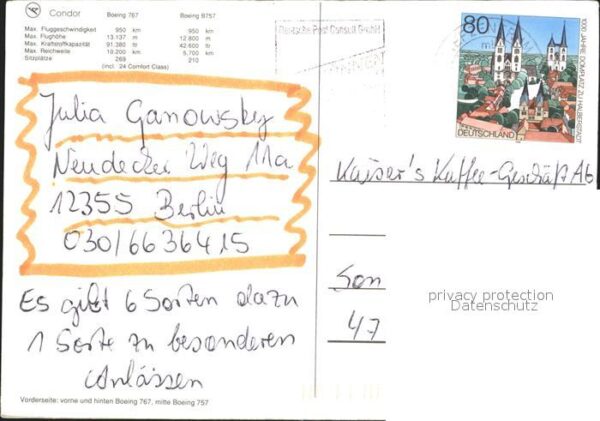 Condor
Boeing 767 Boeing B757
Max. Fluggeschwindigkeit 950 km 950 km
Max. Flughöhe 13.137 m 12.800 m
Max. Kraftstoffkapazität 91.380 ltr 42.600 ltr
Max. Reichweite 10.200 km 5.700 km
Sitzplätze 269 210
(incl. 24 Comfort Class)
Deutsche Post Consult GmbH
80
1000 JAHRE DOMPLATZ ZU HALBERSTADT
DEUTSCHLAND
Julia Ganowsky
Neudecker Weg 11a
12355 Berlin
030/6636415
Es gibt 6 Sorten dazu
1 Sorte zu besonderen
Anlässen
Kaiser's Kaffee-Geschäft AG
Son
47
privacy protection
Datenschutz
Vorderseite: vorne und hinten Boeing 767, mitte Boeing 757